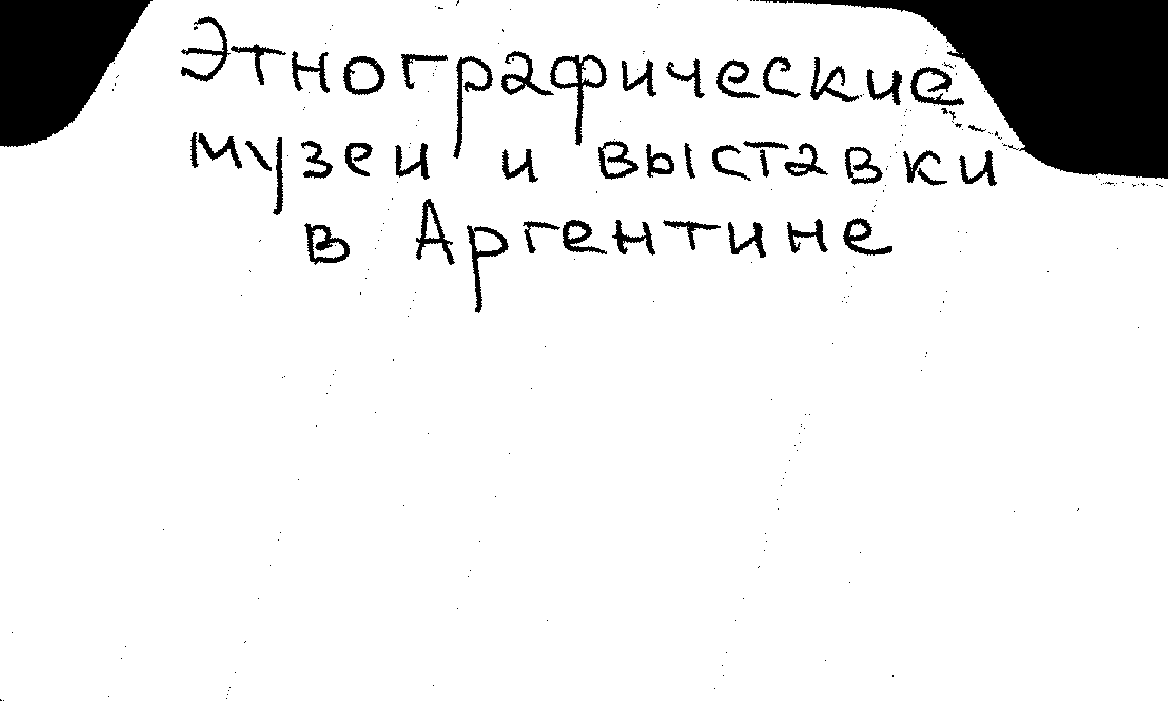 Этнографические
музеи и выставки
в Аргентине